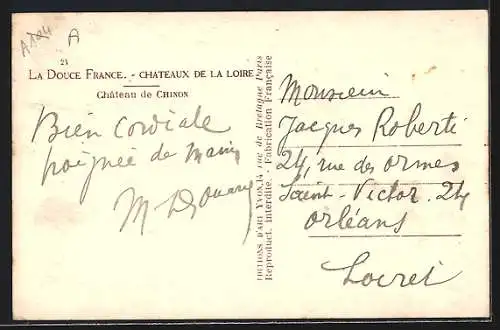 A
21
LA DOUCE FRANCE. - CHATEAUX DE LA LOIRE
Château de CHINON
Bien Cordiale
poignée de Main
EDITIONS D'ART YVON, 14 rue de Bretagne Paris
Reproduct. interdite. - Fabrication Française
Monsieur
Jacques Roberti
24, rue des ormes
Saint-Victor. 24
orléans
Loiret